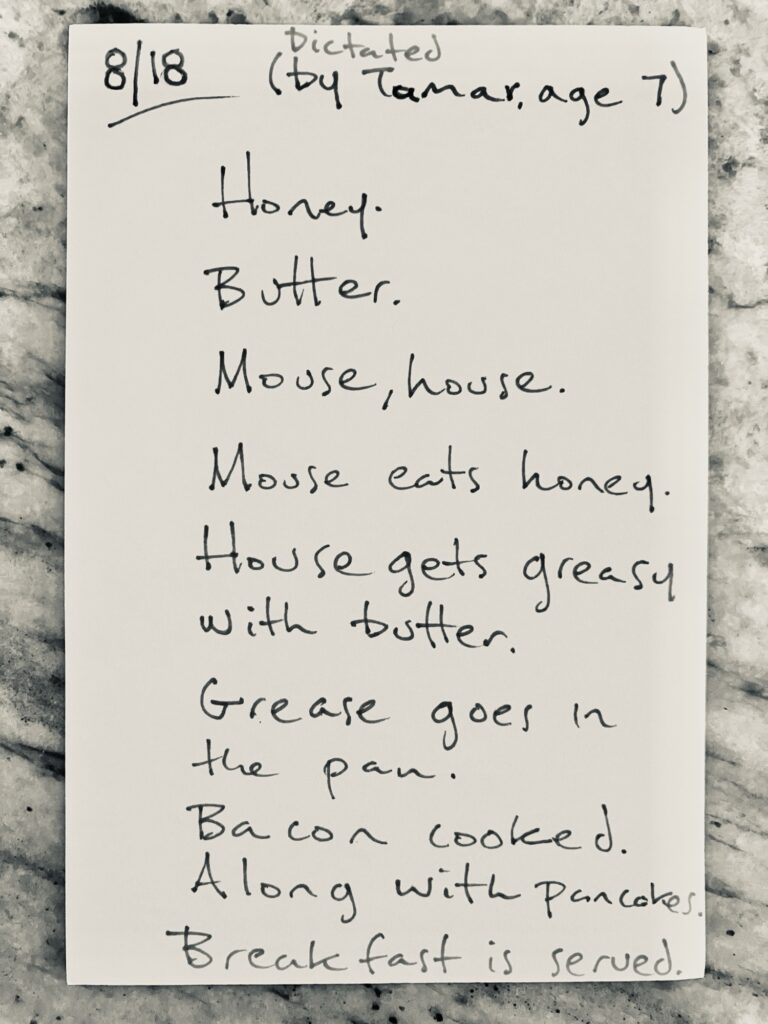 8/18
Dictated
(by Tamar, age 7)
Honey.
Butter.
Mouse, house.
Mouse eats honey.
House gets greasy
with butter.
Grease goes in
the pan.
Bacon cooked.
Along with pancakes.
Breakfast is served.